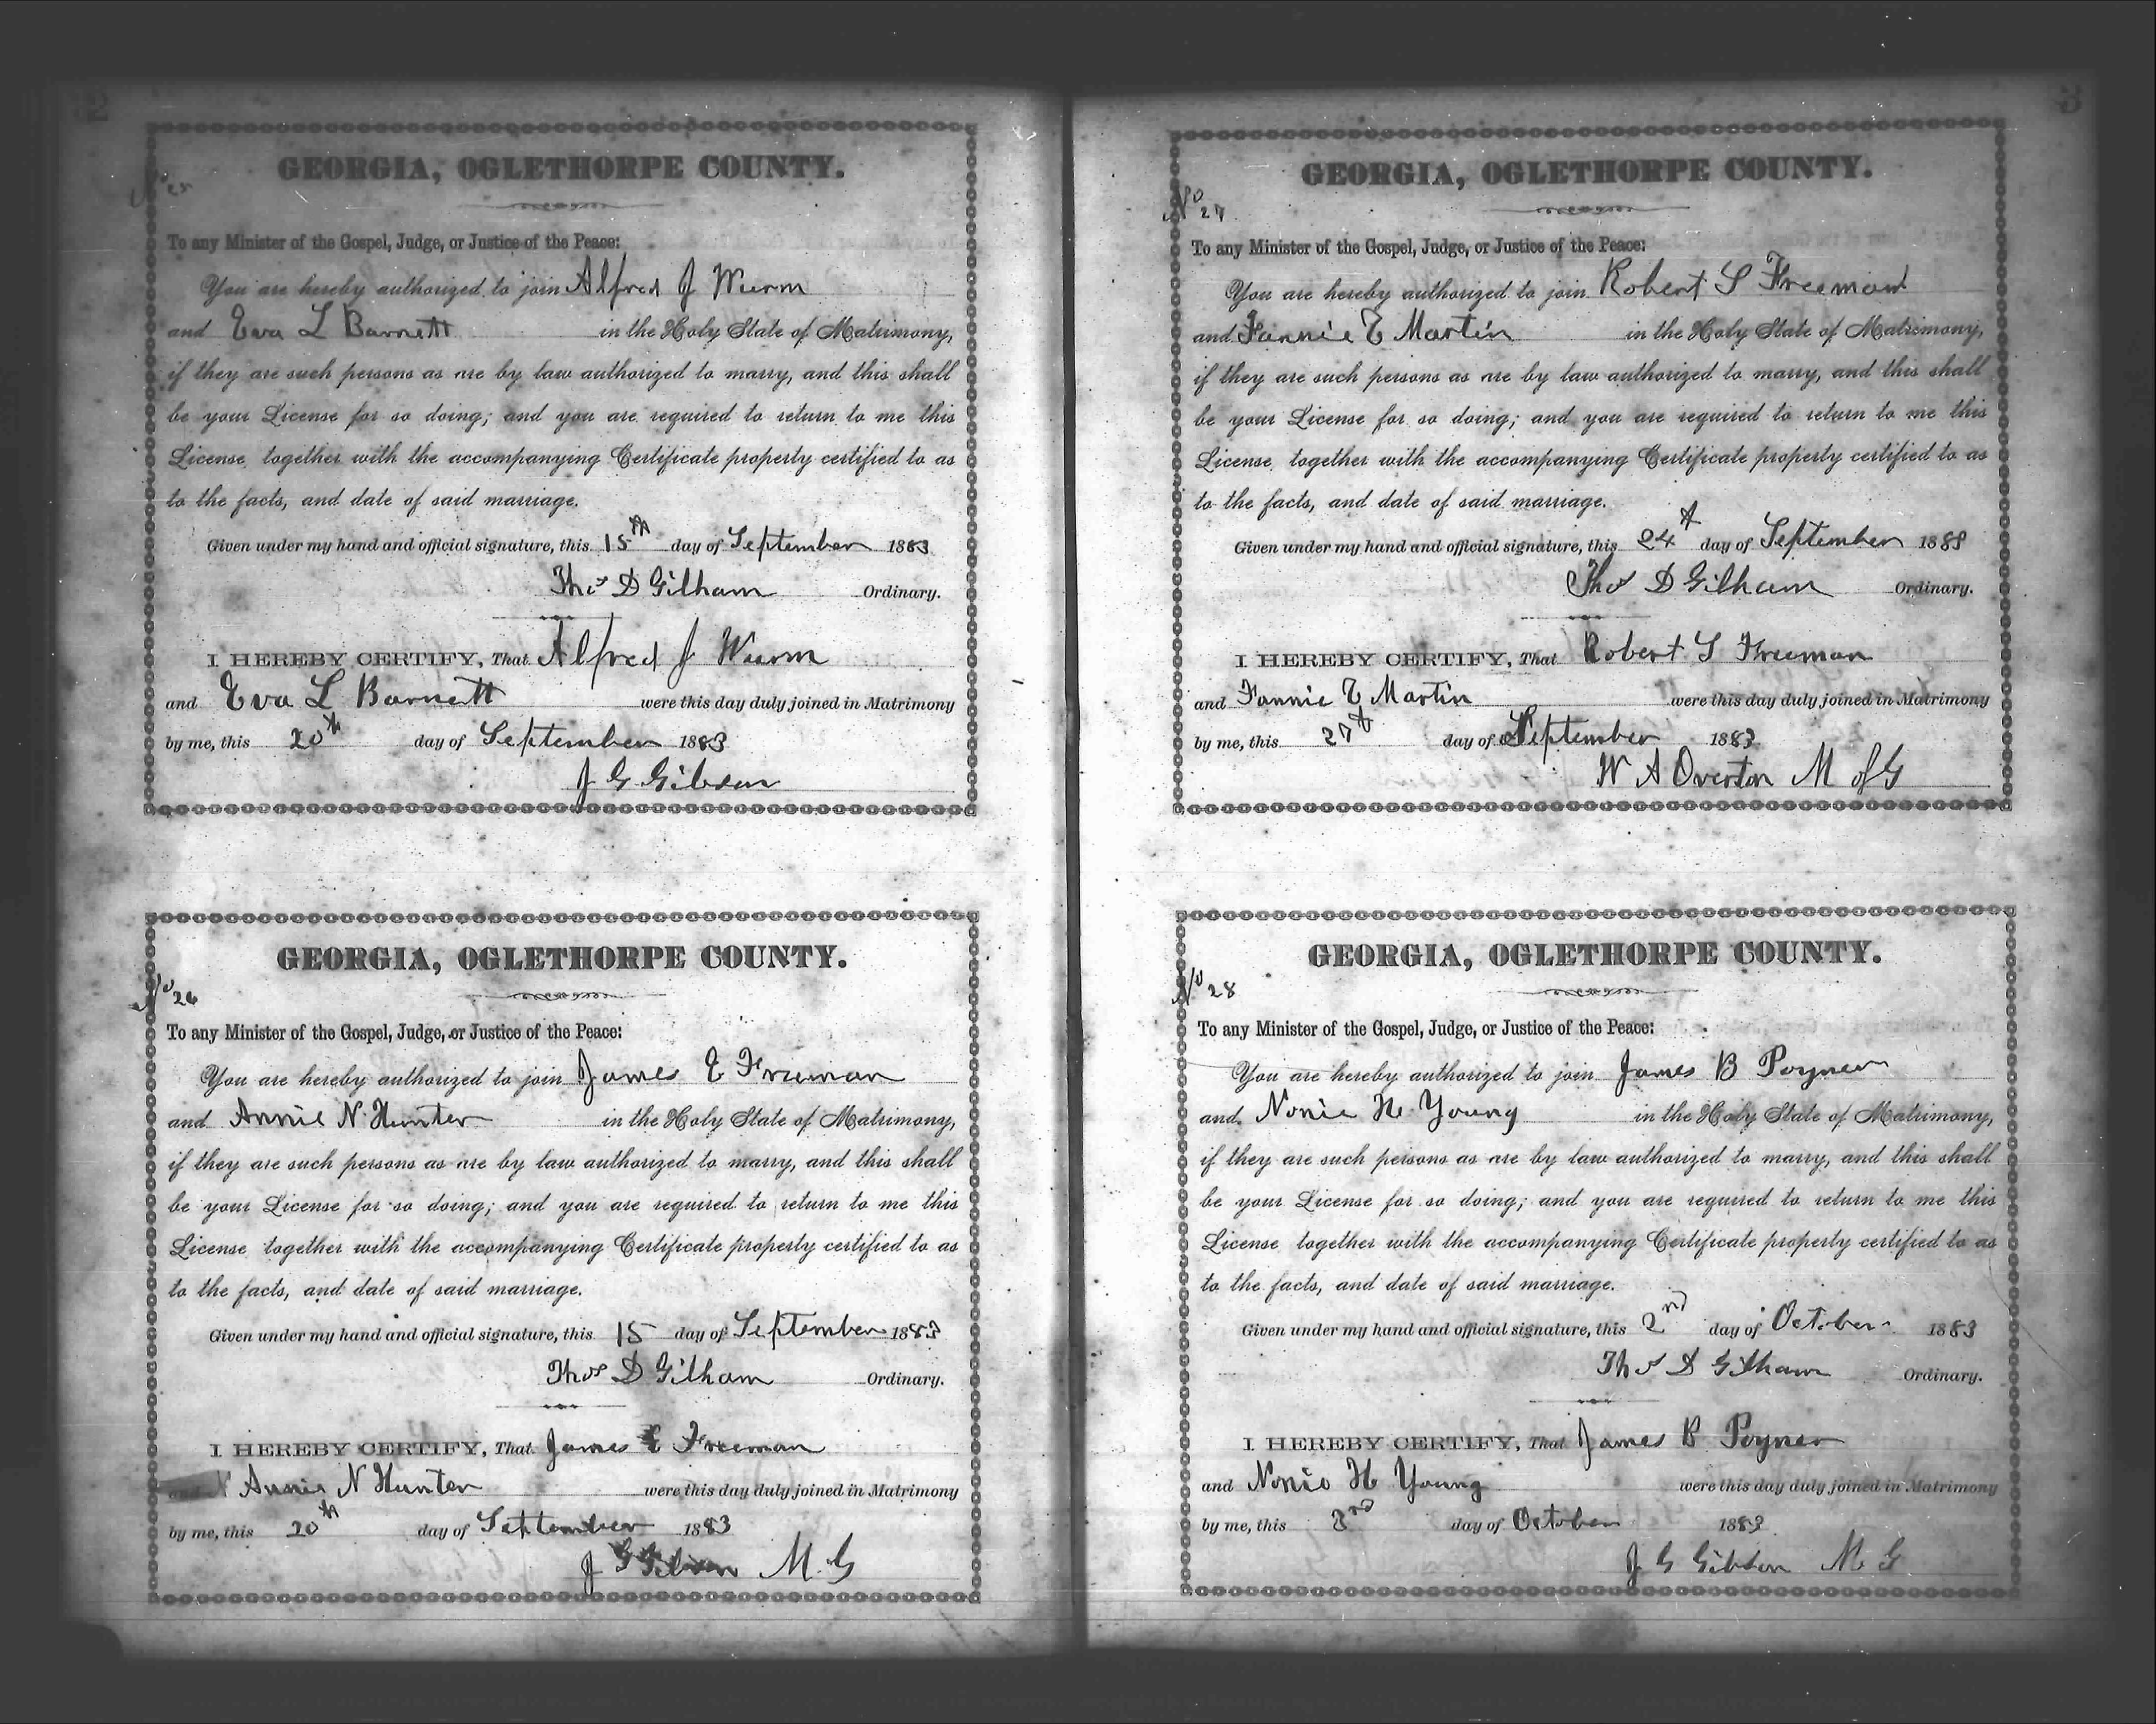 2
GEORGIA, OGLETHORPE COUNTY.
No 25
To any Minister of the Gospel, Judge, or Justice of the Peace:
You are hereby authorized to join Alfred J Wurm
and Eva L Barnett in the Holy State of Matrimony,
if they are such persons as are by law authorized to marry, and this shall
be your License for so doing; and you are required to return to me this
License, together with the accompanying Certificate property certified to as
to the facts, and date of said marriage.
Given under my hand and official signature, this 15th day of September 1883
Thos D Gilham Ordinary.
I HEREBY CERTIFY, That Alfred J Wurm
and Eva L Barnett were this day duly joined in Matrimony
by me, this 20th day of September 1883
J G Gibson
GEORGIA, OGLETHORPE COUNTY.
No 26
To any Minister of the Gospel, Judge, or Justice of the Peace:
You are hereby authorized to join James E Freeman
and Annie N Hunter in the Holy State of Matrimony,
if they are such persons as are by law authorized to marry, and this shall
be your License for so doing; and you are required to return to me this
License, together with the accompanying Certificate property certified to as
to the facts, and date of said marriage.
Given under my hand and official signature, this 15 day of September 1883
Thos D Gilham Ordinary.
I HEREBY CERTIFY, That James E Freeman
and Annie N Hunter were this day duly joined in Matrimony
by me, this 20th day of September 1883
J G Gibson M. G
3
GEORGIA, OGLETHORPE COUNTY.
No 27
To any Minister of the Gospel, Judge, or Justice of the Peace:
You are hereby authorized to join Robert S Freeman
and Fannie T Martin in the Holy State of Matrimony,
if they are such persons as are by law authorized to marry, and this shall
be your License for so doing; and you are required to return to me this
License, together with the accompanying Certificate property certified to as
to the facts, and date of said marriage.
Given under my hand and official signature, this 24th day of September 1883
Thos D Gilham Ordinary.
I HEREBY CERTIFY, That Robert S Freeman
and Fannie T Martin were this day duly joined in Matrimony
by me, this 27th day of September 1883
W A Overton M of G
GEORGIA, OGLETHORPE COUNTY.
No 28
To any Minister of the Gospel, Judge, or Justice of the Peace:
You are hereby authorized to join James B Poyner
and Nonie H Young in the Holy State of Matrimony,
if they are such persons as are by law authorized to marry, and this shall
be your License for so doing; and you are required to return to me this
License together with the accompanying Certificate property certified to as
to the facts, and date of said marriage.
Given under my hand and official signature, this 2nd day of October 1883
Thos D Gilham Ordinary.
I HEREBY CERTIFY, That James B Poyner
and Nonie H Young were this day duly joined in Matrimony
by me, this 3rd day of October 1883
J G Gibson M G